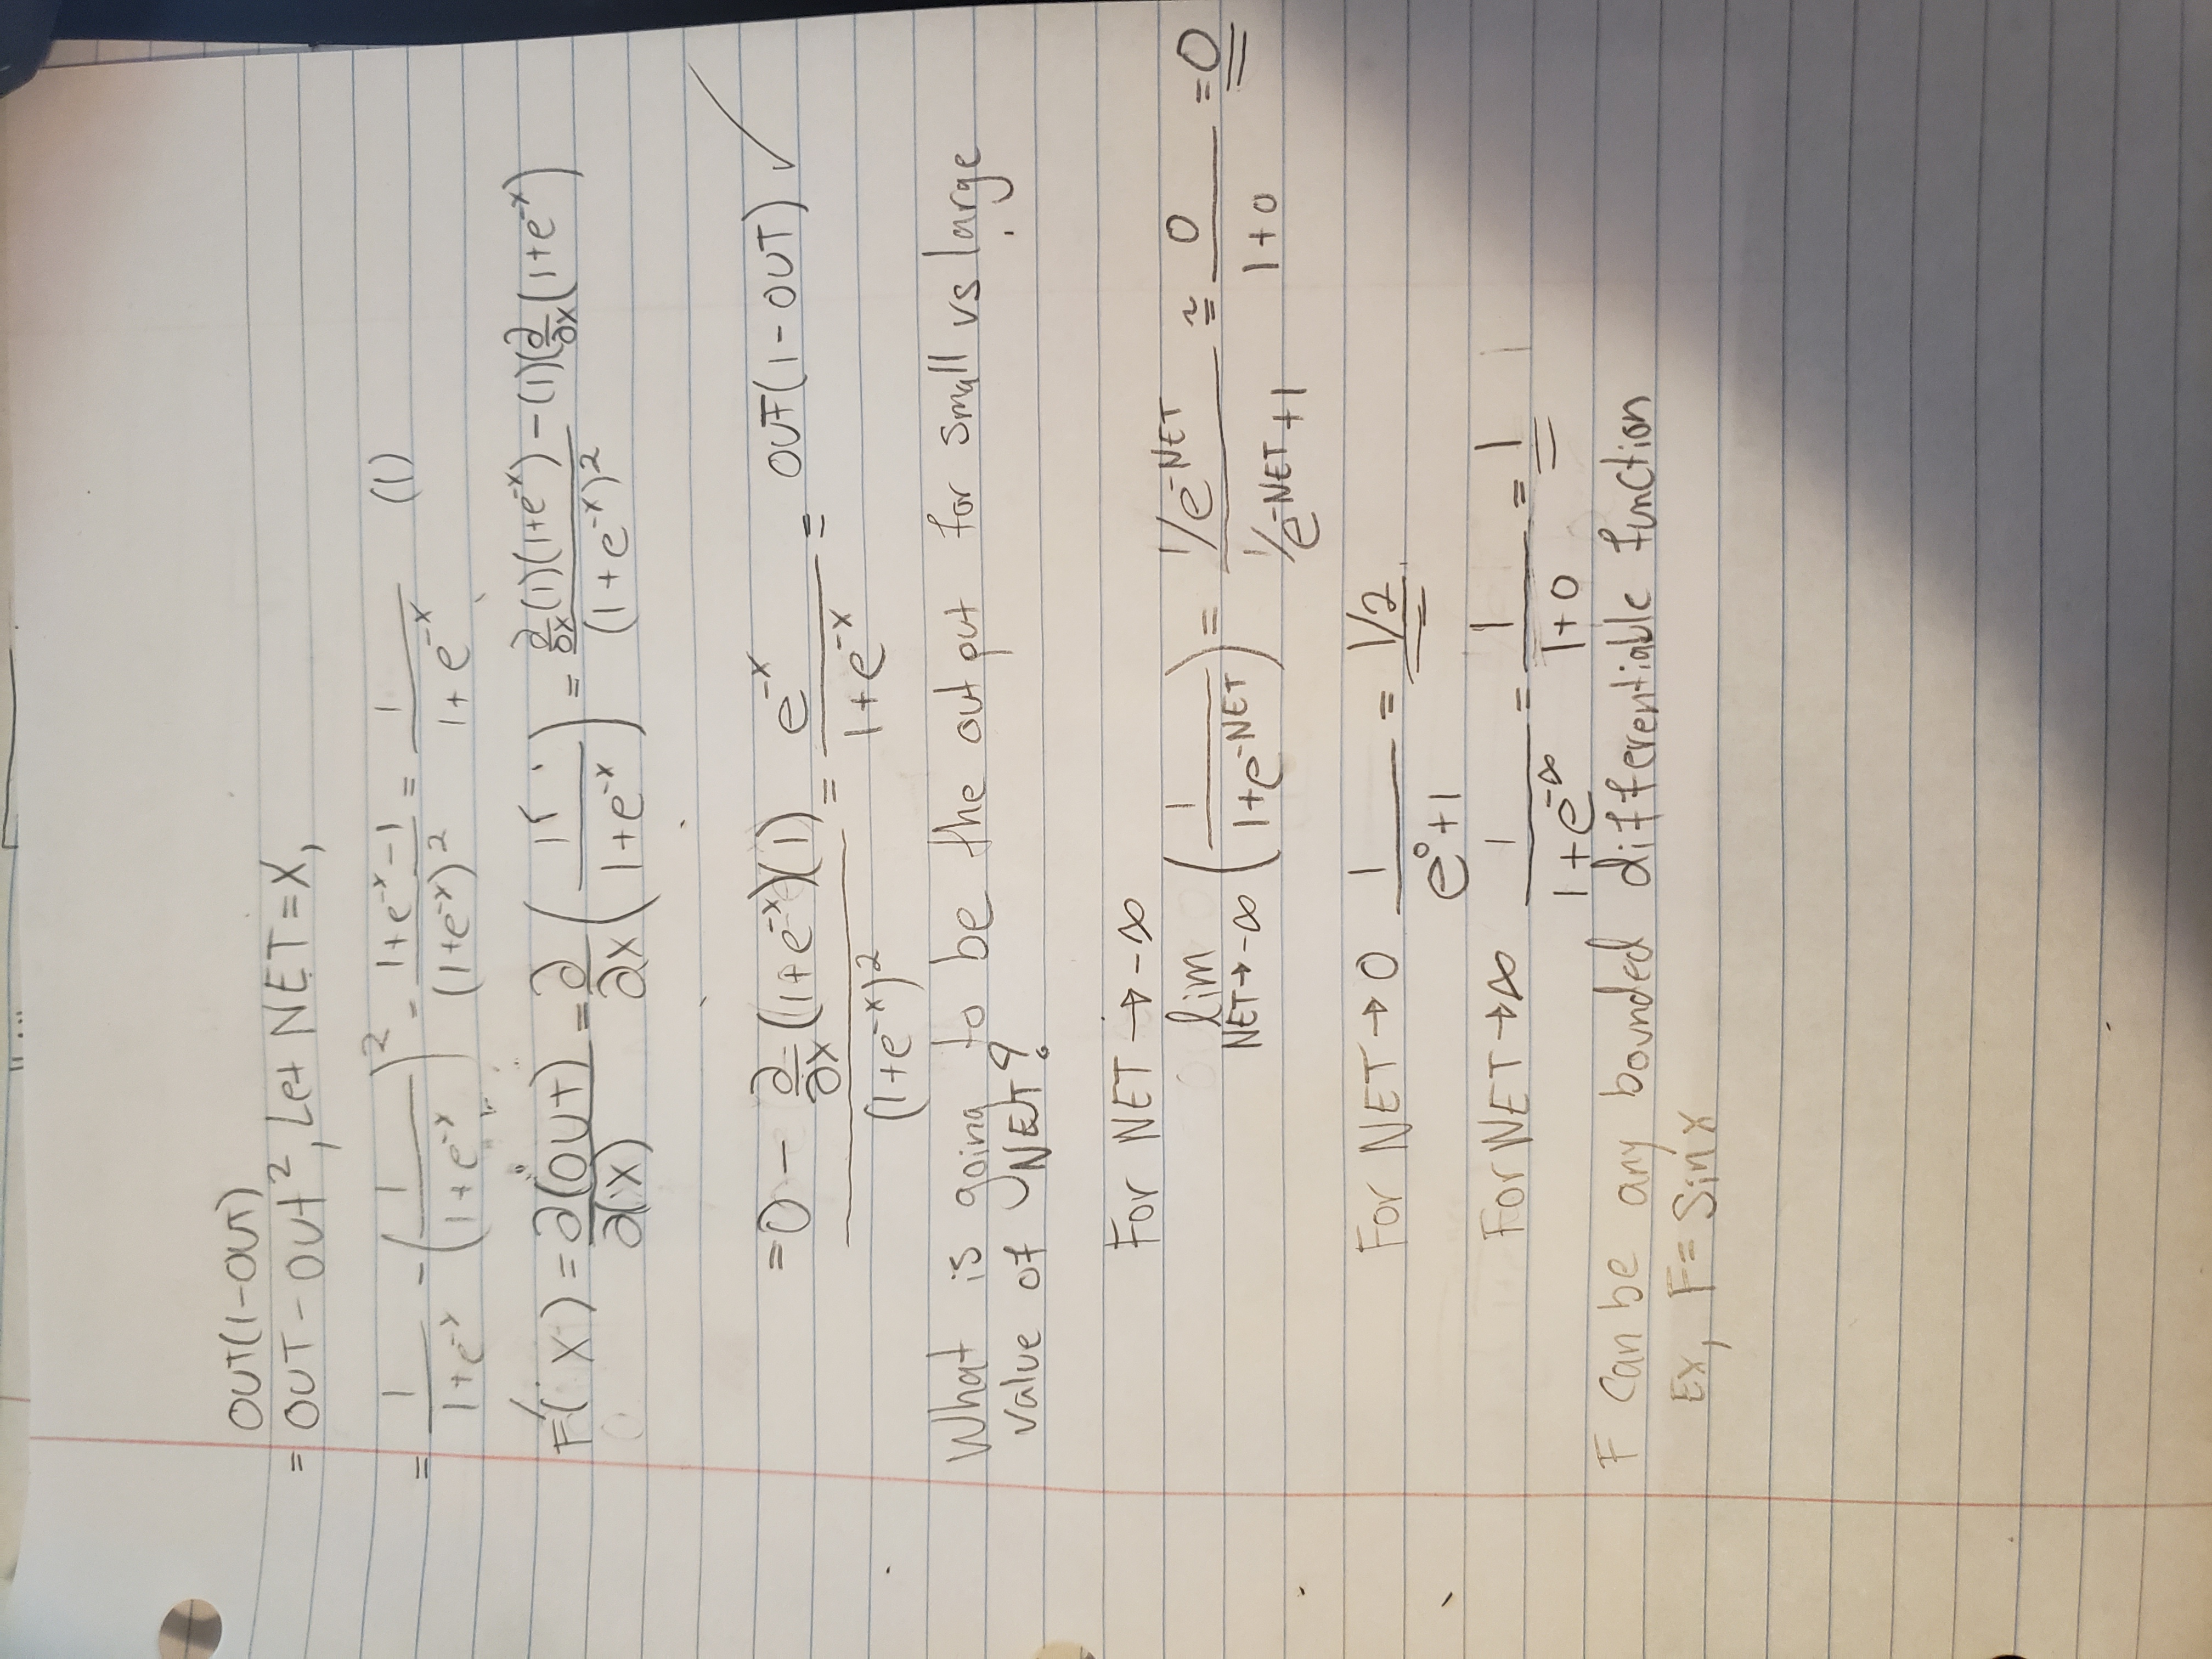 OUT(1-OUT)
= OUT - Out², Let NET = X,
= 1/(1+e^-x) - (1/(1+e^-x))² = (1+e^-x - 1)/(1+e^-x)² = 1/(1+e^-x) (1)
F'(X) = ∂(OUT)/∂(X) = ∂/∂x (1/(1+e^-x)) = (∂/∂x(1)(1+e^-x) - (1)(∂/∂x(1+e^-x))/(1+e^-x)²
= (0 - ∂/∂x(1+e^-x)(1))/(1+e^-x)² = e^-x/(1+e^-x) = OUT(1-OUT) ✓
What is going to be the output for small vs large
value of NET?
For NET → -∞
lim NET→-∞ (1/(1+e^-NET)) = (1/e^-NET)/(1/e^-NET + 1) ≅ 0/(1+0) = 0
For NET → 0 1/(e^0+1) = 1/2
For NET → ∞ 1/(1+e^-∞) = 1/(1+0) = 1
F can be any bounded differentiable function
Ex, F = Sin x